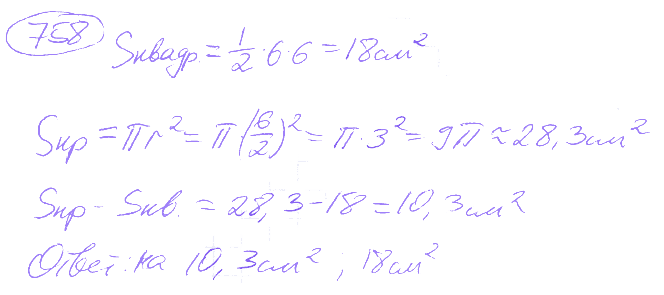 758 Sквадр. = 1/2 · 6 · 6 = 18 см²
Sкр = πr² = π(6/2)² = π · 3² = 9π ≈ 28,3 см²
Sкр - Sкв. = 28,3 - 18 = 10,3 см²
Ответ: на 10,3 см² , 18 см²